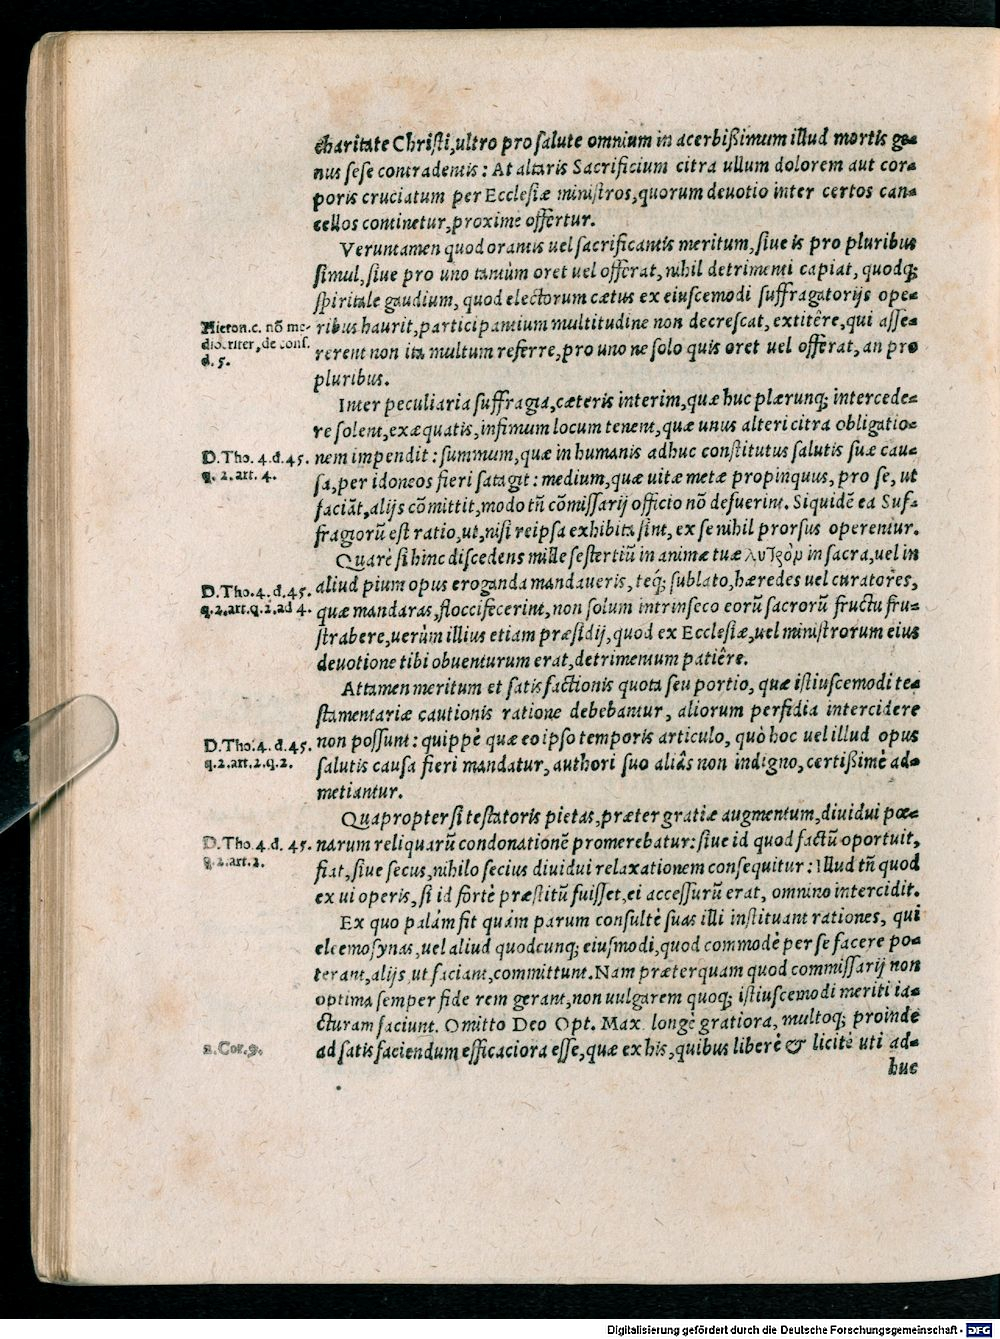 charitate Christi, ultro pro salute omnium in acerbißimum illud mortis ge-
nus sese contradentis: At altaris Sacrificium citra ullum dolorem aut cor-
poris cruciatum per Ecclesiæ ministros, quorum deuotio inter certos can-
cellos continetur, proximè offertur.
Veruntamen quod orantis uel sacrificantis meritum, siue is pro pluribus
simul, siue pro uno tantùm oret uel offerat, nihil detrimenti capiat, quodq;
spiritale gaudium, quod electorum cætus ex eiuscemodi suffragatorijs ope-
Hieron.c. nõ me-
diocriter, de cons.
d. 5.
ribus haurit, participantium multitudine non decrescat, extitêre, qui asse-
rerent non ita multum referre, pro uno ne solo quis oret uel offerat, an pro
pluribus.
Inter peculiaria suffragia, cæteris interim, quæ huc plærunq; intercede-
re solent, exæquatis, infimum locum tenent, quæ unus alteri citra obligatio-
D.Tho. 4. d. 45.
q. 2. art. 4.
nem impendit: summum, quæ in humanis adhuc constitutus salutis suæ cau-
sa, per idoneos fieri satagit: medium, quæ uitæ metæ propinquus, pro se, ut
faciãt, alijs cõmittit, modo tñ cõmissarij officio nõ defuerint. Siquidẽ ea Suf-
fragiorũ est ratio, ut, nisi reipsa exhibita sint, ex se nihil prorsus operentur.
Quarè si hinc discedens mille sestertiũ in animæ tuæ λυτρὸρ in sacra, uel in
D.Tho. 4. d. 45.
q.2.art.q.2.ad 4.
aliud pium opus eroganda mandaueris, teq́; sublato, hæredes uel curatores,
quæ mandaras, floccifecerint, non solum intrinseco eorũ sacrorũ fructu fru-
strabere, uerùm illius etiam præsidij, quod ex Ecclesiæ, uel ministrorum eius
deuotione tibi obuenturum erat, detrimentum patiêre.
Attamen meritum et satisfactionis quota seu portio, quæ istiuscemodi te-
stamentariæ cautionis ratione debebantur, aliorum perfidia intercidere
D.Tho. 4. d. 45.
q.2.art.2.q.2.
non possunt: quippè quæ eo ipso temporis articulo, quò hoc uel illud opus
salutis causa fieri mandatur, authori suo aliâs non indigno, certißimè ad-
metiantur.
Quapropter si testatoris pietas, præter gratiæ augmentum, diuidui pœ-
D.Tho. 4. d. 45.
q. 2. art. 2.
narum reliquarũ condonationẽ promerebatur: siue id quod factũ oportuit,
fiat, siue secus, nihilo secius diuidui relaxationem consequitur: Illud tñ quod
ex ui operis, si id fortè præstitũ fuisset, ei accessurũ erat, omnino intercidit.
Ex quo palám fit quám parum consultè suas illi instituant rationes, qui
eleemosynas, uel aliud quodcunq; eiusmodi, quod commodè per se facere po-
terant, alijs ut faciant, committunt. Nam præterquam quod commissarij non
optima semper fide rem gerant, non uulgarem quoq; istiuscemodi meriti ia-
cturam faciunt. Omitto Deo Opt. Max. longè gratiora, multoq; proinde
2. Cor. 9.
ad satisfaciendum efficaciora esse, quæ ex his, quibus liberè & licitè uti ad-
huc
Digitalisierung gefördert durch die Deutsche Forschungsgemeinschaft - DFG